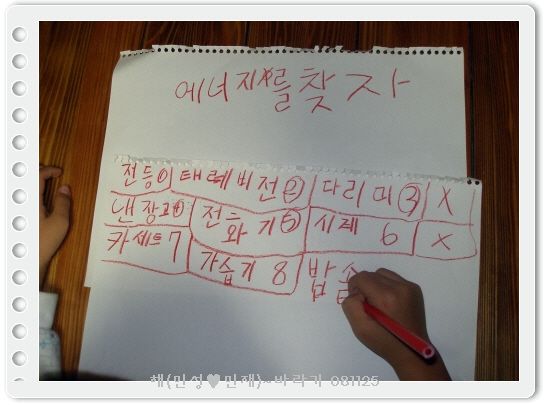 에너지를 찾자
전등① 태레비전② 다리미③ X
낸장고④ 전화기⑤ 시계 6 X
카세트 7 가습기 8 밥솥
해(민성♥민재)~바락기 081125